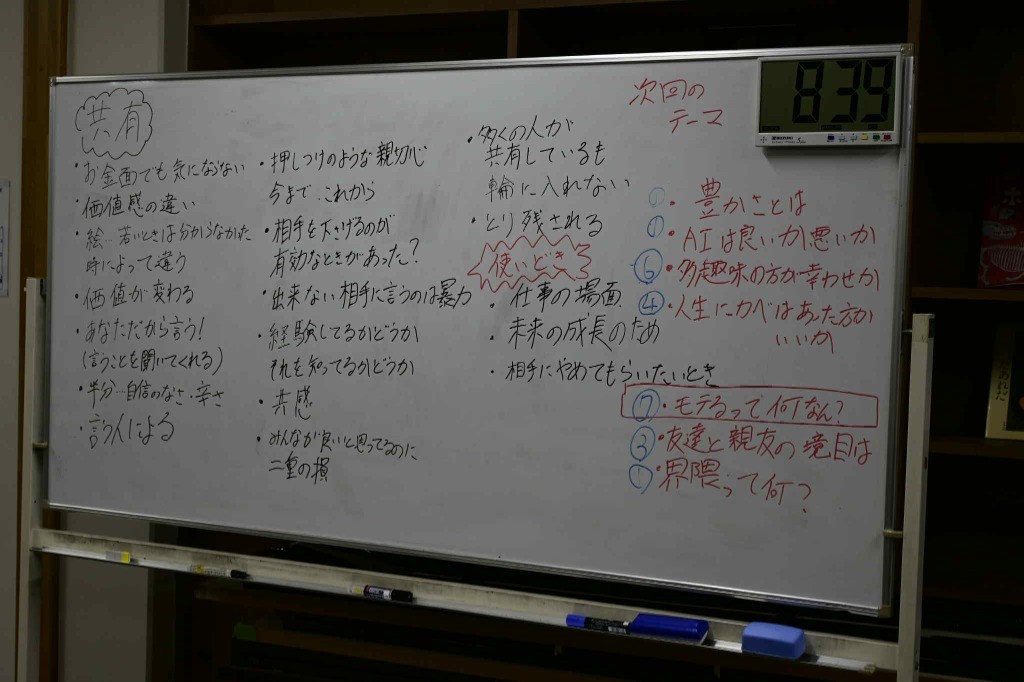 共有
・お金面でも気にならない
・価値感の違い
・絵…若いときは分からなかった
時によって違う
・価値が変わる
・あなただから言う!
(言うことを聞いてくれる)
・半分…自信のなさ・辛さ
・言う人による
・押しつけのような親切心
今まで、これから
・相手を下さげるのが
有効なときがあった?
・出来ない相手に言うのは暴力
・経験してるかどうか
それを知ってるかどうか
・共感
・みんなが良いと思ってるのに
二重の損
・多くの人が
共有しているも
輪に入れない
・とり残される
使いどき
・仕事の場面
・未来の成長のため
・相手にやめてもらいたいとき
次回の
テーマ
・豊かさとは
①・AIは良いか悪いか
⑥・多趣味の方が幸わせか
④・人生にカベはあった方が
いいか
⑦・モテるって何なん?
③・友達と親友の境目は
①・界隈って何?
8:39